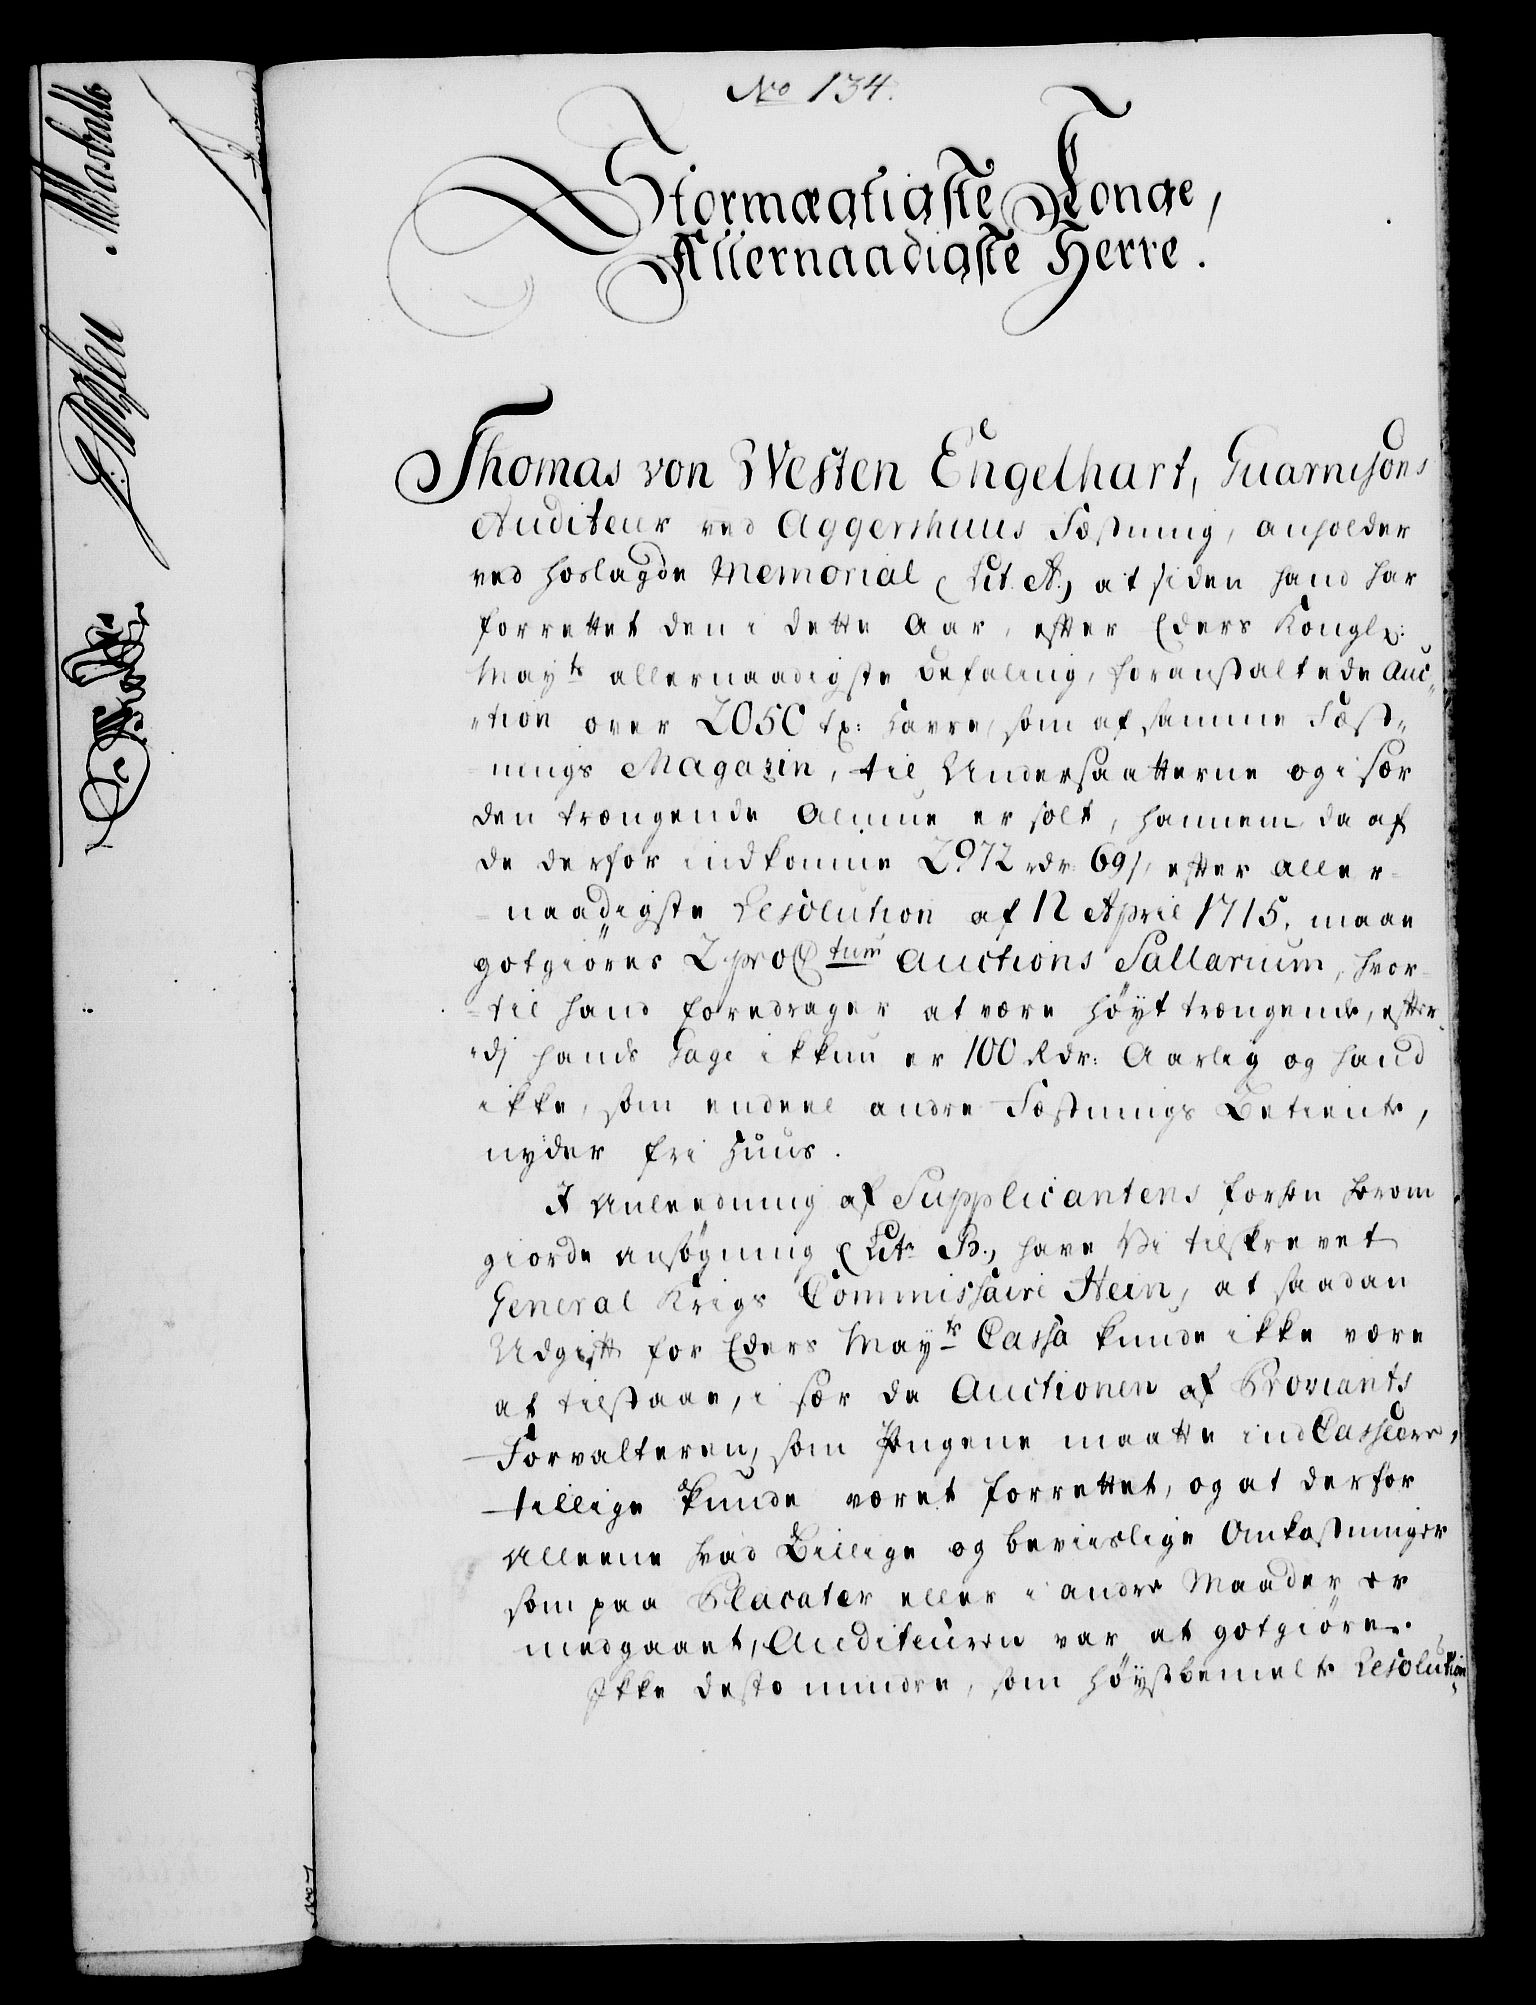 No 134.
Stormægtigste Konge,
Allernaadigste Herre.
Thomas von Westen Engelhart, Guarnisons
Auditeur ved Aggershuus Fæstning, anholder
ved hoslagde Memorial (Lit. A.) at siden hand har
forrettet den i dette Aar, efter Eders Kongl:
Mayts allernaadigste Befaling, foranstaltede Auc-
-tion over 2050 tr: Havre, som af samme Fæst-
nings Magazin, til Undersaatterne og i sær
den trængende Almue er solt, hannem da af
de derfor indkomne 2972 rdr 69 s, efter aller-
naadigste Resolution af 12 April 1715, maae
gotgiøres 2 pro Ctum Auctions Sallarium, hvor-
-til hand foredrager at være høyt trængende, efter-
-di hands Gage ikkun er 100 Rdr: Aarlig og hand
ikke, som endeel andre Fæstnings Betiente,
nyder fri Huus.
I Anleedning af Supplicantens forhen herom
giorde ansøgning (Litr B.) have Vi tilskrevet
General Krigs Commissaire Stein, at saadan
Udgift for Eders Mayts Cassa kunde ikke være
at tilstaae, i sær da Auctionen af Proviants
Forvalteren, som Pengene maatte indCassere,
tillige kunde været forrettet, og at derfor
Alleene hvad Billige og bevislige Omkostninger
som paa Placater eller i andre Maader er
medgaaet, Auditeuren var at gotgiøre.
Ikke desto mindre, som høystbemelte Resolution